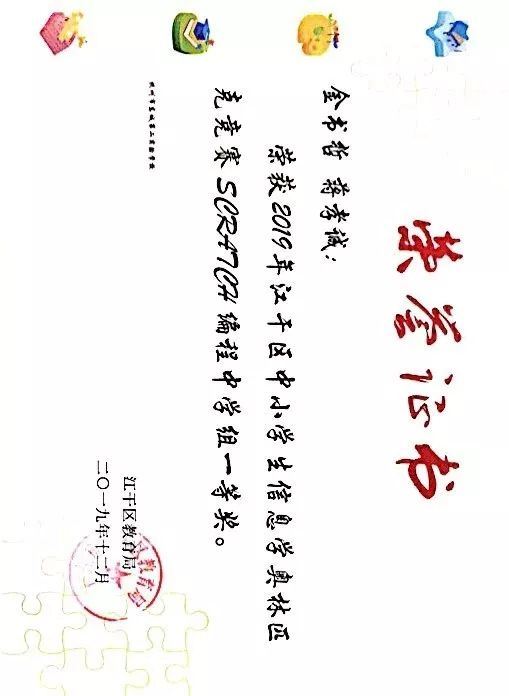 荣誉证书
金书哲 蒋孝诚：
荣获2019年江干区中小学生信息学奥林匹
克竞赛SCRATCH编程中学组一等奖。
杭州市采荷第二实验学校
江干区教育局
二〇一九年十二月